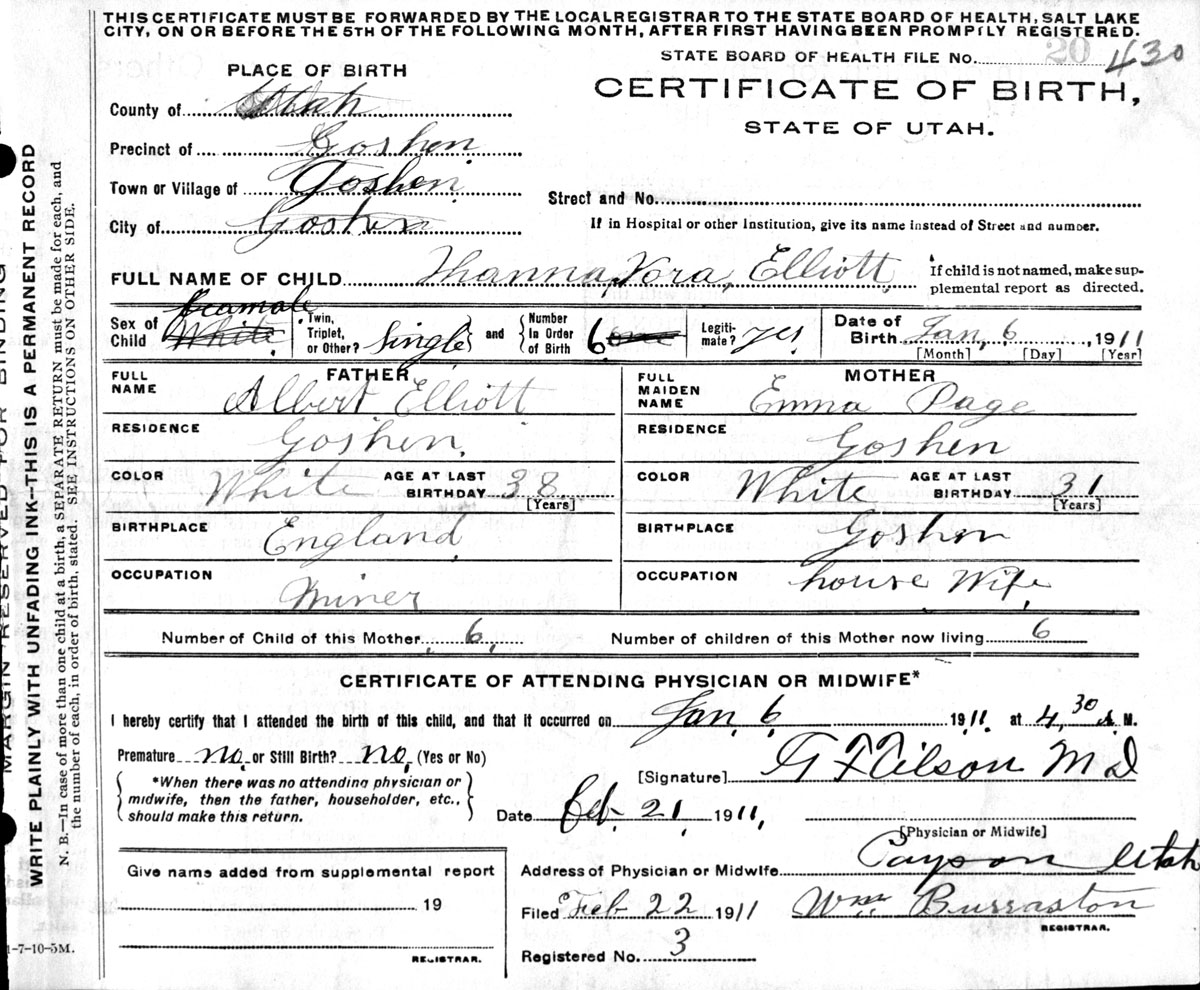 THIS CERTIFICATE MUST BE FORWARDED BY THE LOCAL REGISTRAR TO THE STATE BOARD OF HEALTH, SALT LAKE
CITY, ON OR BEFORE THE 5TH OF THE FOLLOWING MONTH, AFTER FIRST HAVING BEEN PROMPTLY REGISTERED.
STATE BOARD OF HEALTH FILE NO. 20 430
PLACE OF BIRTH
CERTIFICATE OF BIRTH,
STATE OF UTAH.
County of Utah
Precinct of Goshen
Town or Village of Goshen
Street and No.
City of Goshen
If in Hospital or other Institution, give its name instead of Street and number.
FULL NAME OF CHILD Thanna, Vora, Elliott
If child is not named, make sup-
plemental report as directed.
Sex of Child Feamale White
Twin, Triplet, or Other? Single
and Number In Order of Birth 6 one
Legiti-mate? yes
Date of Birth Jan, 6, 1911
[Month] [Day] [Year]
FATHER
FULL NAME Albert Elliott
RESIDENCE Goshen,
COLOR White AGE AT LAST BIRTHDAY 38 [Years]
BIRTHPLACE England
OCCUPATION Miner
MOTHER
FULL MAIDEN NAME Emma Page
RESIDENCE Goshen
COLOR White AGE AT LAST BIRTHDAY 31 [Years]
BIRTHPLACE Goshen
OCCUPATION house Wife
Number of Child of this Mother 6, Number of children of this Mother now living 6
CERTIFICATE OF ATTENDING PHYSICIAN OR MIDWIFE*
I hereby certify that I attended the birth of this child, and that it occurred on Jan, 6, 1911, at 4,30 A. M.
Premature no, or Still Birth? no, (Yes or No)
*When there was no attending physician or
midwife, then the father, householder, etc.,
should make this return.
[Signature] M D
Date Feb. 21, 1911,
[Physician or Midwife]
Address of Physician or Midwife Payson Utah
Give name added from supplemental report
19
REGISTRAR.
Filed Feb 22 1911 Wm. Burraston
REGISTRAR.
Registered No. 3
1-7-10-5M.
MARGIN RESERVED FOR BINDING
WRITE PLAINLY WITH UNFADING INK—THIS IS A PERMANENT RECORD
N. B.—In case of more than one child at a birth, a SEPARATE RETURN must be made for each, and
the number of each, in order of birth, stated. SEE INSTRUCTIONS ON OTHER SIDE.